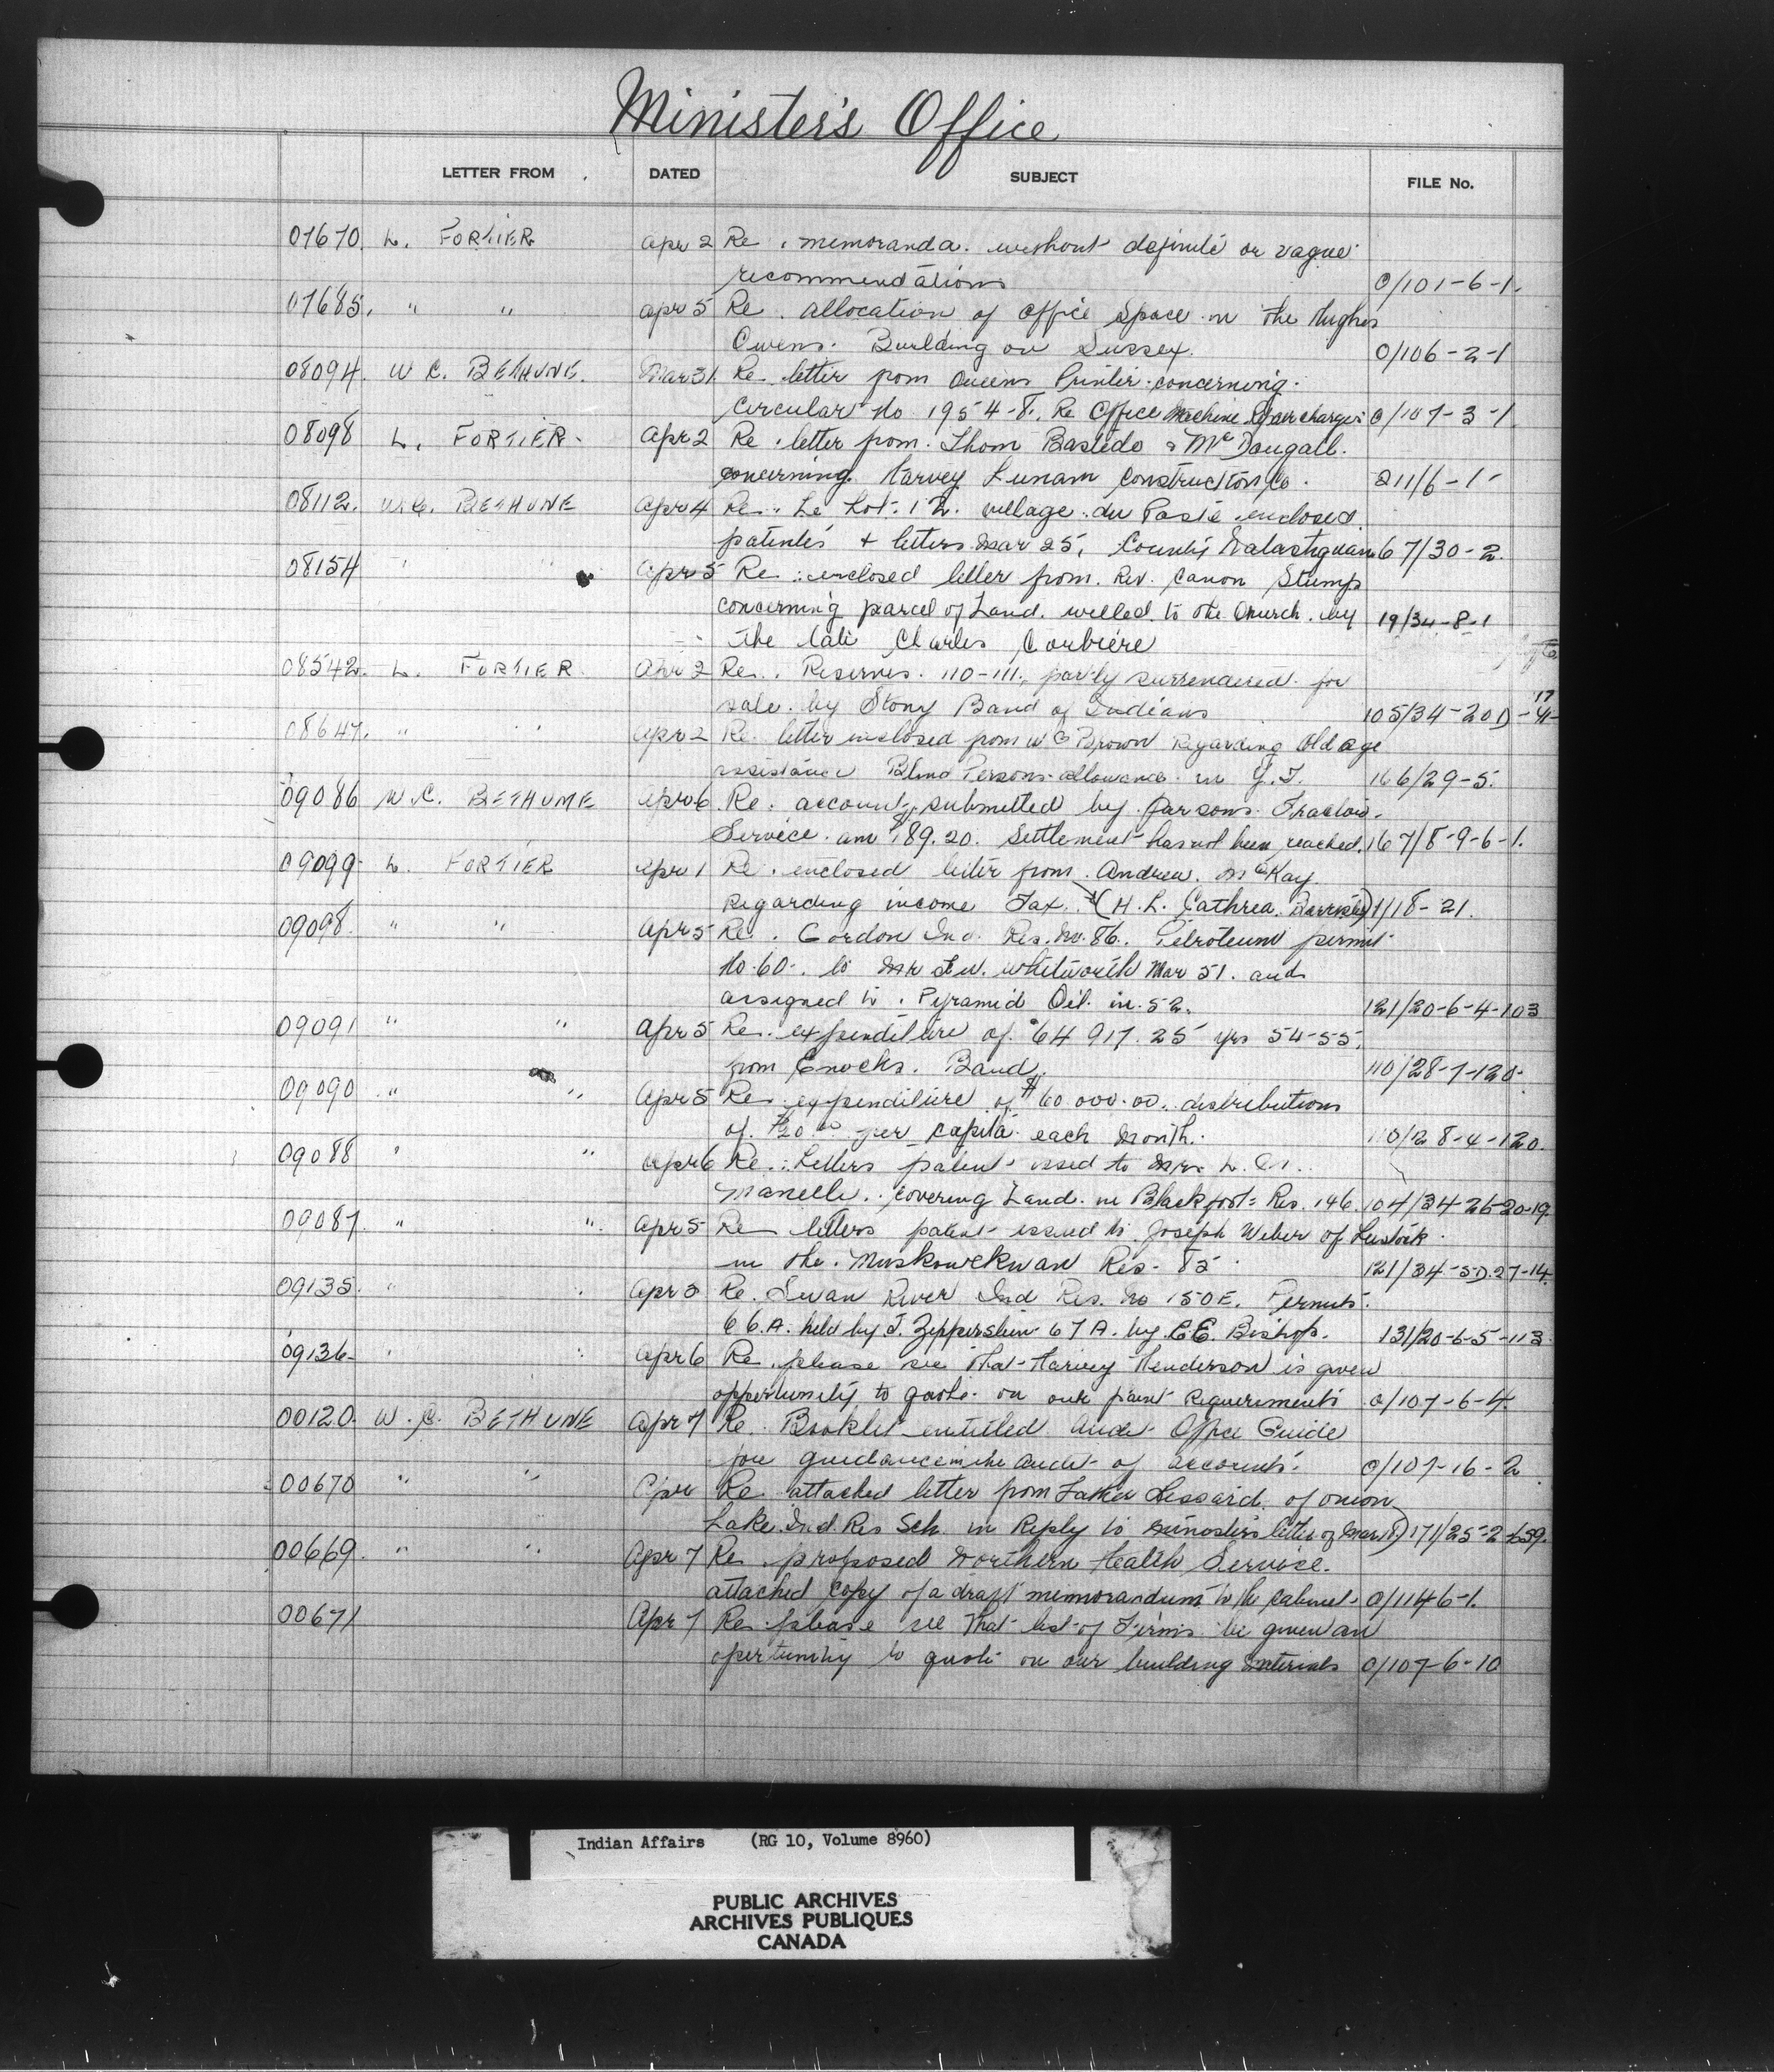 Minister's Office
LETTER FROM DATED SUBJECT FILE No.
07670. L. FORTIER apr 2 Re. memoranda. without definite or vague
recommendations 0/101-6-1.
07685. " " apr 5 Re. allocation of office space in the Hughes
Owens. Building on Sussex. 0/106-2-1
08094. W C. BETHUNE. Mar 31. Re. letter from Queens Printer concerning.
circular No 1954-8. Re Office Machine Repair charges 0/107-3-1
08098 L. FORTIER. Apr 2 Re. letter from. Thom Bastedo & McDougall.
concerning. Harvey Lunam Construction Co. 211/6-1-
08112. W.C. BETHUNE apr 4 Re. Le Lot. 12. village du Poste enclosed
patents + letters Mar 25, County 67/30-2.
08154 " " apr 5 Re. enclosed letter from. Rev. Canon Stump
concerning parcel of Land. willed to the Church. by 19/34-8-1
the late Charles Corbiere
08542. L. FORTIER. apr 2 Re. Reserves. 110-111, partly surrendered for
sale. by Stony Band of Indians 105/34-20D-17-41-
08647. " " apr 2 Re. letter enclosed from W G Brown Regarding Old age
assistance Blind Persons allowance in Y.T. 166/29-5.
09086 W.C. BETHUNE apr 6 Re. account, submitted by Parsons. Tractor.
Service. am $189.20. Settlement has not been reached. 167/8-9-6-1.
09099. L. FORTIER apr 1 Re. enclosed letter from. Andrew. McKay.
Regarding income Tax. (H. L. Cathrea. Barrister) 1/18-21.
09098. " " apr 5 Re. Gordon Ind. Res. No. 86. Petroleum permit
No. 60. to Mr. whitworth Mar 51. and
assigned to. Pyramid Oil. in. 52. 121/20-6-4-103
09091 " " apr 5 Re. expenditure of $64 917.25 yrs 54-55.
from Enochs. Band. 110/28-7-120.
09090 " " apr 5 Re expenditure of $60 000.00. distributions
of. $20.00 per capita each Month. 110/28-4-120.
09088 " " apr 6 Re. Letters patent issued to Mrs L. A.
Manelle. covering Land. in Blackfoot Res. 146. 104/34-26-20-19.
09087. " " apr 5 Re letters patent issued to Joseph Weber of Lestock.
in the. Muskowekwan Res. 85 121/34-5-D.27-14.
09135. " " apr 5 Re. Swan River Ind Res. No 150E. Permits.
66.A. held by J. Zeppershein 67A. by C.E. Bishop. 131/20-6-5-113
09136 " " apr 6 Re. please see that Harvey Henderson is given
opportunity to quote. on our paint Requirements 0/107-6-4.
00120. W. C. BETHUNE Apr 7 Re. Booklet entitled Audit Office Guide
for guidance in the audit of accounts. 0/107-16-2
00670 " " Apr Re. attached letter from Father Lessard. of Onion
Lake. Ind. Res Sch. in Reply to Ministers letter of Mar 8) 171/25-2-659.
00669. " " Apr 7 Re. proposed Northern Health Service.
attached copy of a draft memorandum to the Cabinet. 0/1146-1.
00671 Apr 7 Re. please see that list of Firms be given an
opertunity to quote on our building Materials 0/107-6-10
Indian Affairs (RG 10, Volume 8960)
PUBLIC ARCHIVES
ARCHIVES PUBLIQUES
CANADA